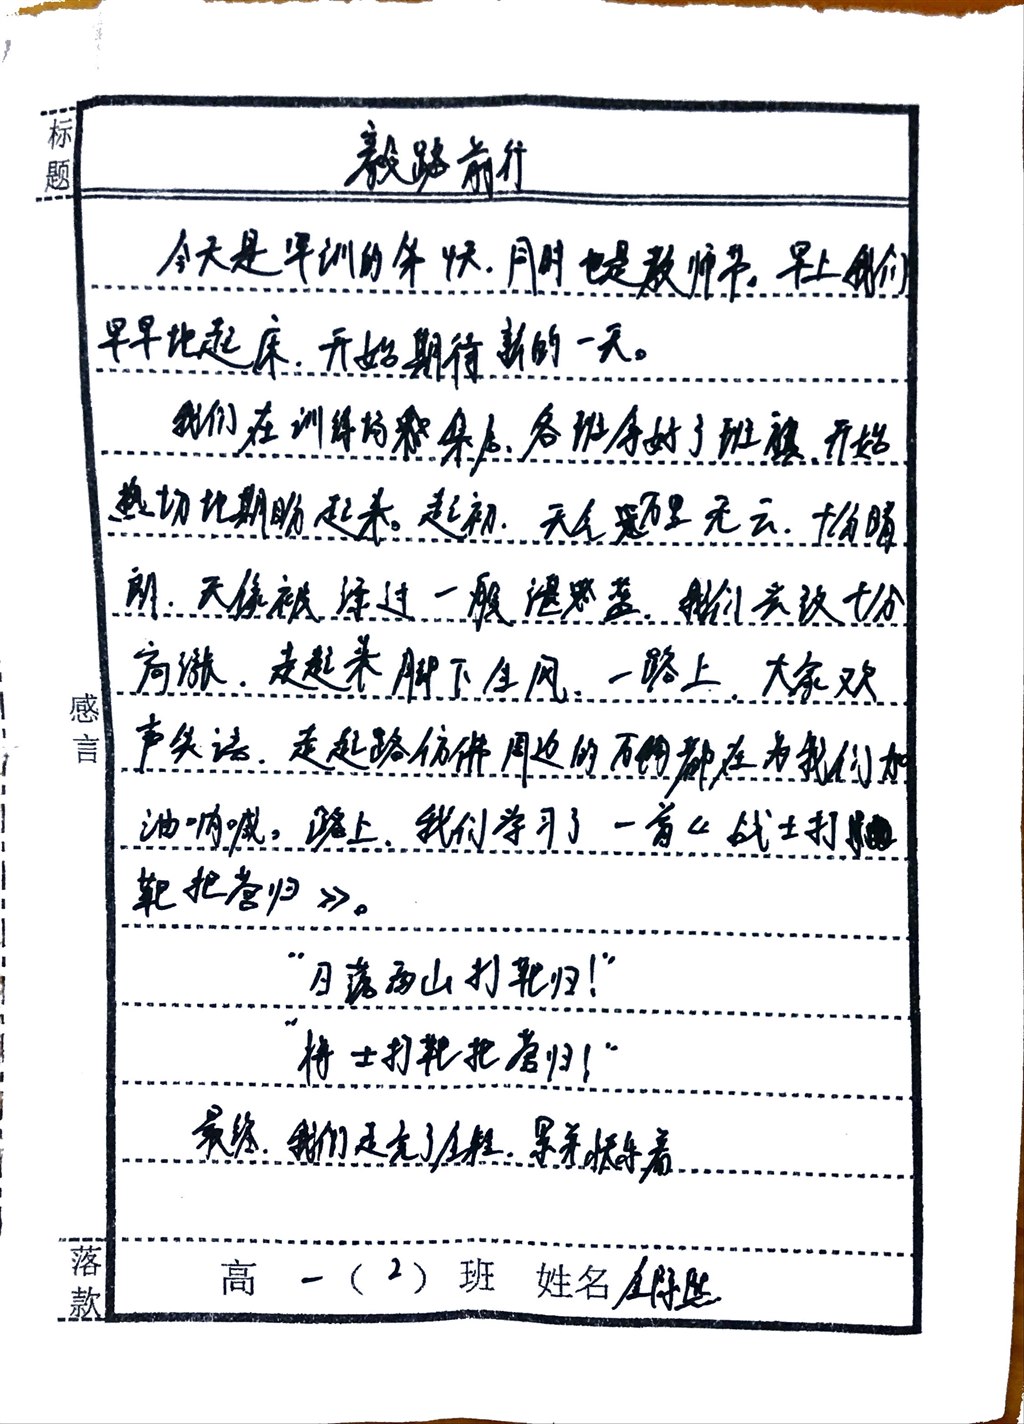 标题
毅路前行
今天是军训的第5天，同时也是教师节。早上我们
早早地起床，开始期待新的一天。
我们在训练场集合，各班拿好了班旗，开始
热切地期盼起来。起初，天气万里无云，十分晴
朗，天像被漆过一般湛蓝，我们兴致十分
高涨，走起来脚下生风，一路上，大家欢
声笑语，走起路仿佛周边的万物都在为我们加
油呐喊。路上，我们学习了一首《战士打
靶把营归》。
"日落西山打靶归！"
"将士打靶把营归！"
最终，我们走完了全程，累并快乐着
感言
落款
高一（2）班 姓名